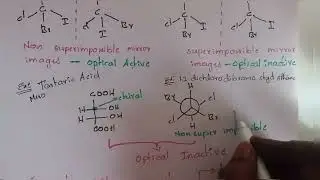 C
Cl
I
Br
C
Cl
I
Br
Non superimposible mirror
images - Optical Active
superimposible mirror
images - Optical inactive
Ex: Tartaric Acid
Meso
COOH
H
OH
H
OH
COOH
chiral
1,2 dichloro
ethane
H
Br
Cl
Cl
Br
H
Non super imposible
Optical Inactive